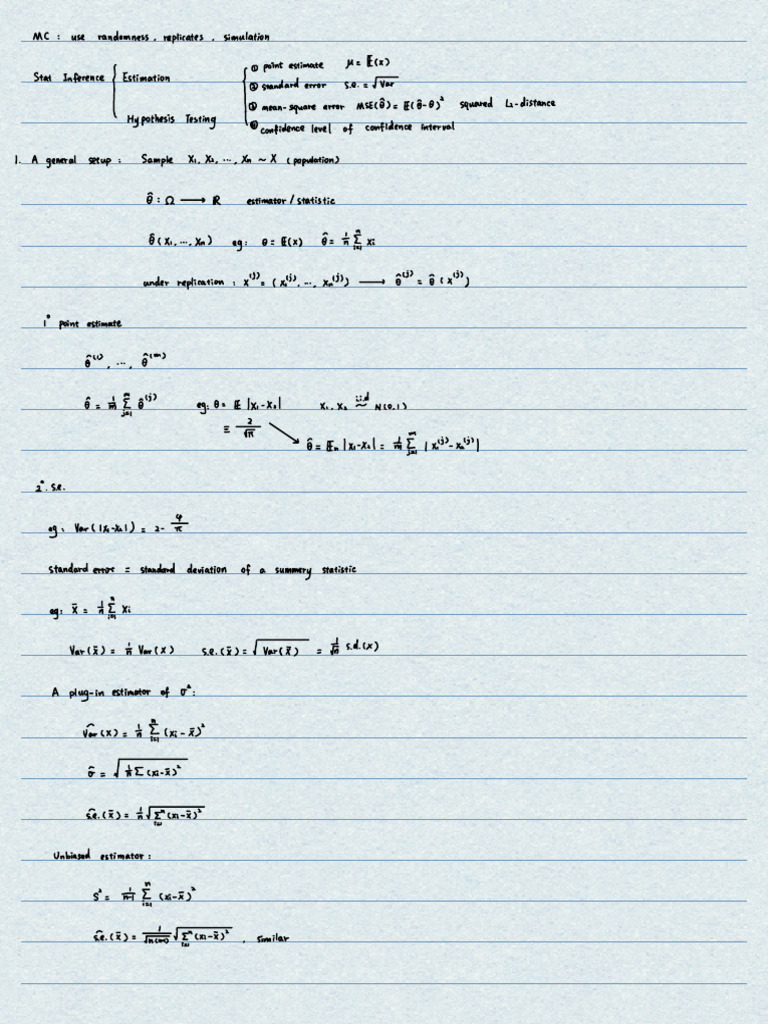 MC : use randomness, replicates, simulation
Stat Inference { Estimation
Hypothesis Testing
① point estimate μ = 𝔼(x)
② standard error s.e. = √Var
③ mean-square error MSE(θ̂) = 𝔼(θ̂-θ)² squared L₂-distance
④ confidence level of confidence interval
1. A general setup : Sample X₁, X₂, ..., Xn ~ X (population)
θ̂ : Ω → ℝ estimator / statistic
θ̂(X₁, ..., Xn) eg: θ = 𝔼(x) θ̂ = 1/n Σ_{i=1}^n Xi
under replication : X^(j) = (X₁^(j), ..., Xn^(j)) → θ̂^(j) = θ̂(X^(j))
1° point estimate
θ̂^(1), ..., θ̂^(m)
θ̂ = 1/m Σ_{j=1}^m θ̂^(j) eg: θ = 𝔼|X₁-X₂| X₁, X₂ iid ~ N(0,1)
≡ 2/√π
θ̂ = 𝔼n|X₁-X₂| = 1/m Σ_{j=1}^m |X₁^(j) - X₂^(j)|
2°. s.e.
eg: Var(|X₁-X₂|) = 2 - 4/π
standard error = standard deviation of a summery statistic
eg: X̄ = 1/n Σ_{i=1}^n Xi
Var(X̄) = 1/n Var(X) s.e.(X̄) = √Var(X̄) = 1/√n s.d.(X)
A plug-in estimator of σ²:
V̂ar(X) = 1/n Σ_{i=1}^n (Xi - X̄)²
σ̂ = √(1/n Σ(Xi-X̄)²)
ŝ.e.(X̄) = 1/n √(Σ_{i=1}^n (Xi-X̄)²)
Unbiased estimator:
S² = 1/(n-1) Σ_{i=1}^n (Xi-X̄)²
ŝ.e.(X̄) = 1/√(n(n-1)) √(Σ_{i=1}^n (Xi-X̄)²) , similar